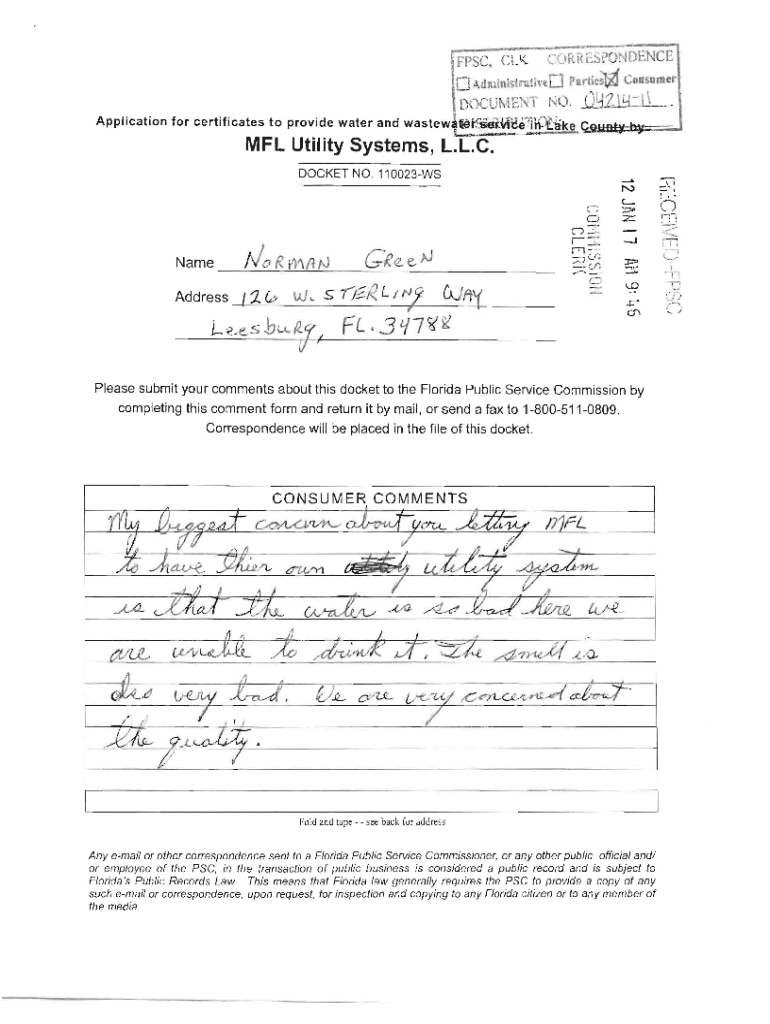 FPSC, CLK CORRESPONDENCE
Administrative Parties Consumer
DOCUMENT NO. 04214-11
Application for certificates to provide water and wastewater service in Lake County by
MFL Utility Systems, L.L.C.
DOCKET NO. 110023-WS
RECEIVED-FPSC
12 JAN 17 AM 9:46
COMMISSION
CLERK
Name NORMAN GReeN
Address 126 W. STERLING WAY
Leesburg, FL. 34788
Please submit your comments about this docket to the Florida Public Service Commission by
completing this comment form and return it by mail, or send a fax to 1-800-511-0809.
Correspondence will be placed in the file of this docket.
CONSUMER COMMENTS
My biggest concern about you letting MFL
to have thier own utility system
is that the water is so bad here we
are unable to drink it. The smell is
also very bad. We are very concerned about
the quality.
Fold and tape - - see back for address
Any e-mail or other correspondence sent to a Florida Public Service Commissioner, or any other public official and/
or employee of the PSC, in the transaction of public business is considered a public record and is subject to
Florida's Public Records Law. This means that Florida law generally requires the PSC to provide a copy of any
such e-mail or correspondence, upon request, for inspection and copying to any Florida citizen or to any member of
the media.